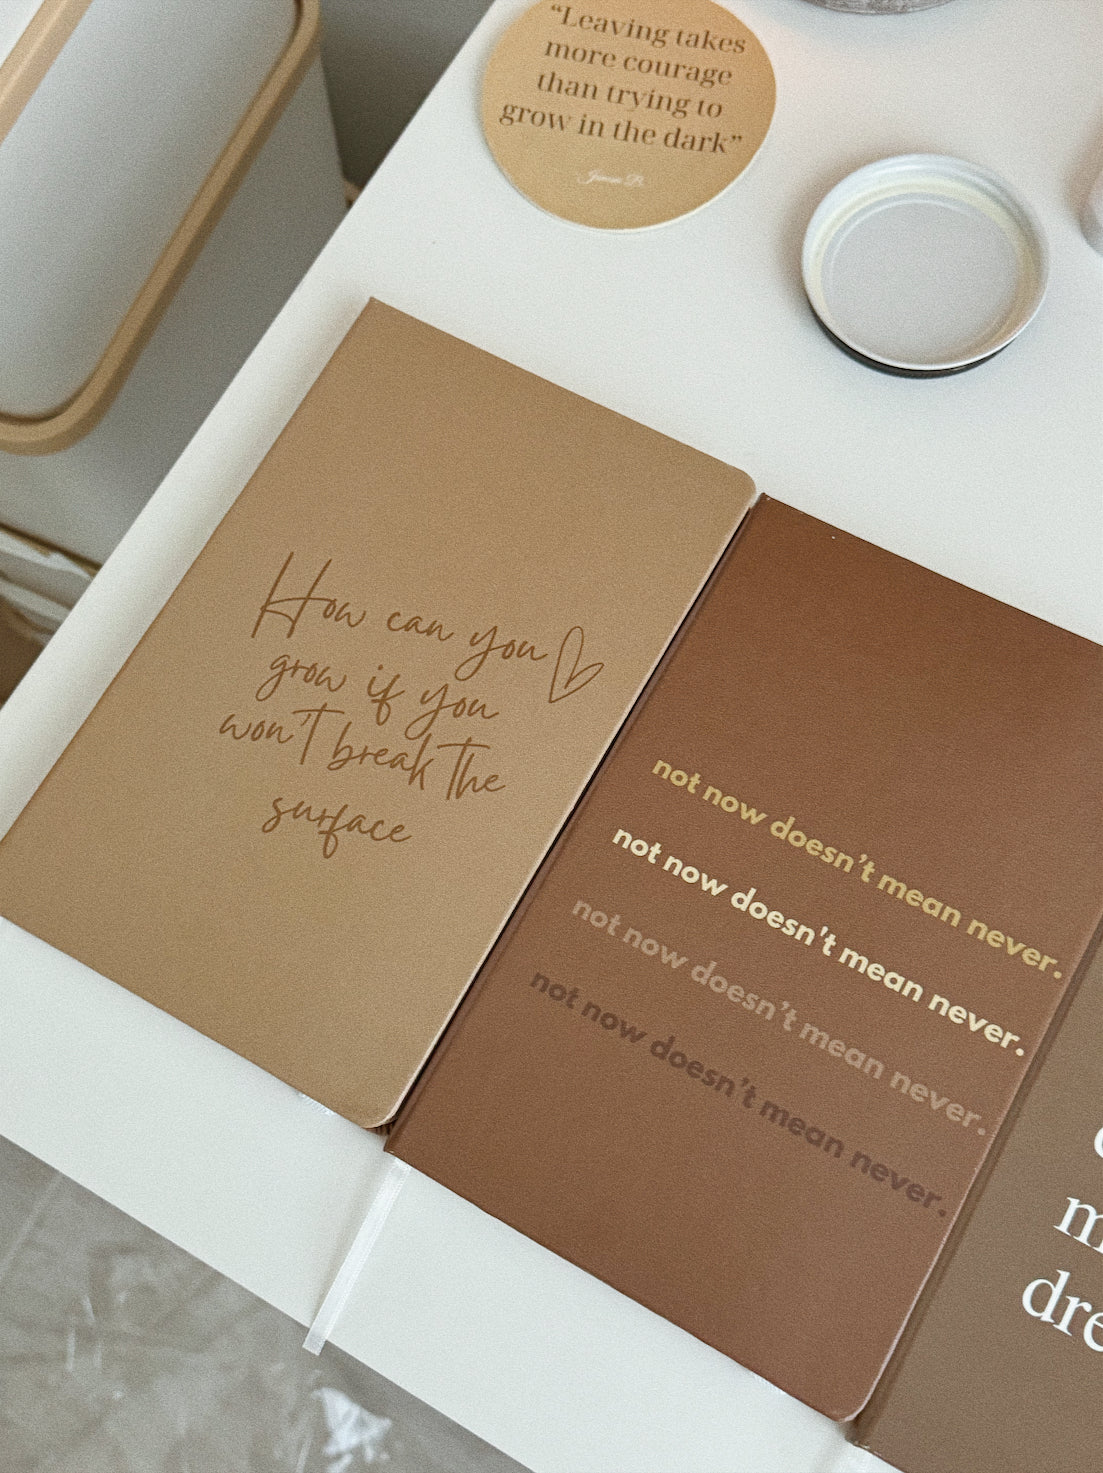 “Leaving takes
more courage
than trying to
grow in the dark”
How can you
grow if you
won't break the
surface
not now doesn't mean never.
not now doesn't mean never.
not now doesn't mean never.
not now doesn't mean never.